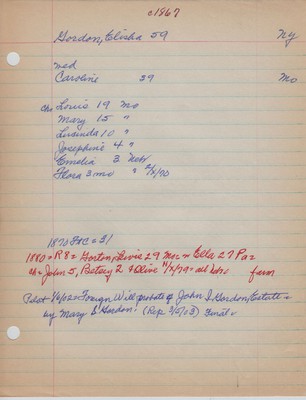 c1867
Gordon, Elisha 59 Ny
med
Caroline 39 Mo
ch Louis 19 Mo
Mary 15 "
Lucinda 10 "
Josephine 4 "
Emelia 3 Nebr
Flora 3 mo " 2/2/70
1870 F&C = 31
1880 = R8 = Gorton, Lewis 29 Mo = Ella 27 Pa =
ch = John 5, Betsey 2 & Olive 11/2/79 = all Nebr farm
Pilot 1/6/02 = Foreign Will probate of John S. Gordon, Estate =
by Mary S. Gordon. (Rep 2/5/03) Final =